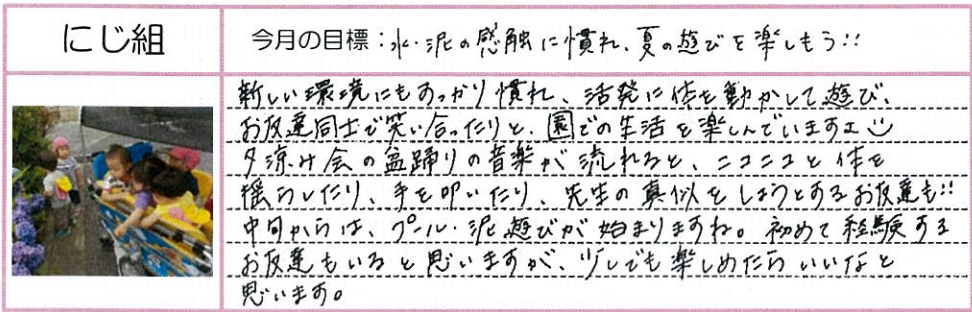 にじ組
今月の目標：水・泥の感触に慣れ、夏の遊びを楽しもう!!
新しい環境にもすっかり慣れ、活発に体を動かして遊び、
お友達同士で笑い合ったりと、園での生活を楽しんでいます
夕涼み会の盆踊りの音楽が流れると、ニコニコと体を
揺らしたり、手を叩いたり、先生の真似をしようとするお友達も!!
中旬からは、プール・泥遊びが始まりますね。初めて経験する
お友達もいると思いますが、少しでも楽しめたらいいなと
思います。